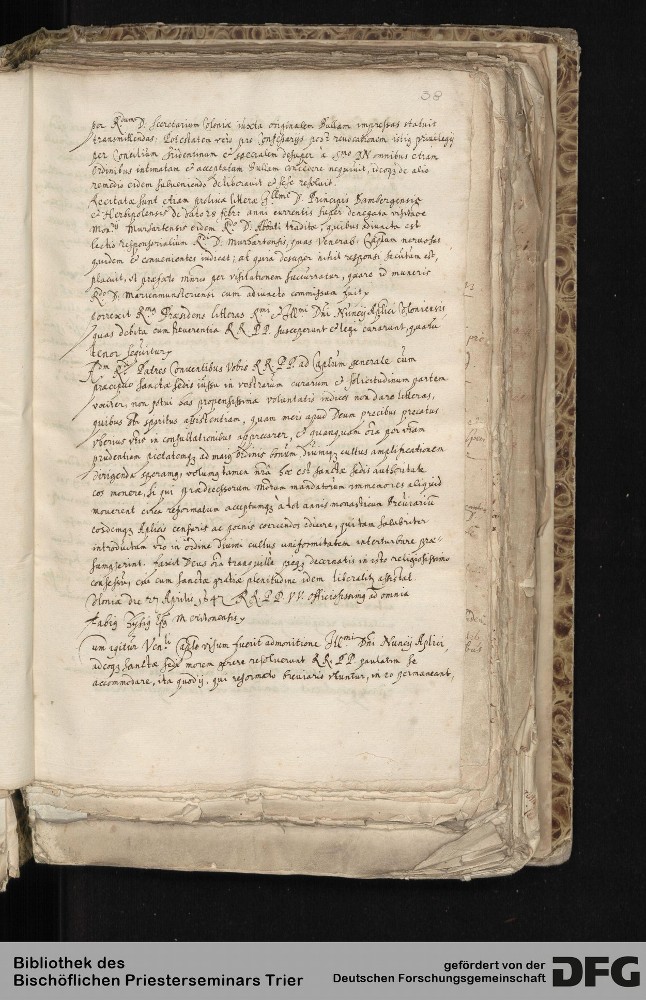 38
per R.dum D. Secretarium Coloniæ iuxta originalem Bullam impressas statuit
transmittendas; Potestatem verò pro Confessarijs post revocationem istius privilegij
per Concilium Tridentinum & specialem desuper à S.mo DN omnibus etiam
Ordinibus intimatam & acceptatam Bullam concedere nequivit, ideoq; de alio
remedio eidem subveniendo deliberavit & sese resolvit.
Recitatæ sunt etiam prolixæ literæ Ill.mi D. Principis Bambergensis
& Herbipolensis de dato 28 febr. anni currentis super denegata visitatione
Mon.rij Murhartensis eidem R.do D. Abbati tradita, quibus adiuncta est
lectio responsorialium R.di D. Murhartensis, quas Venerab. Cap̃lum nervosas
quidem & convenientes iudicet; at quia desuper nihil responsi secutum est,
placuit, ut præfato per visitationem succurratur, quare id muneris
R.do D. Marienmunsteriensi cum adiuncto commissum fuit.
Porrexit R.mus Præsidens literas R.mi & Ill.mi Dñi Nuncij Aplici Coloniensis
quas debita cum Reverentia R.R. P.P. susceperunt & legi curarunt, quarum
tenor sequitur
Adm R.di Patres Conventibus Vobis R.R. P.P. ad Cap̃lum generale cùm
præcipuo Sanctæ Sedis iussu in vestrarum curarum & sollicitudinum partem
vocirer, non potui has propensissimæ voluntatis indices non dare literas,
quibus Sti spiritus assistentiam, quam meis apud Deum precibus precatus
vberius vtis in consultationibus apprecarer, & quanquam
prudentiam pietatemq; ad maius Ordinis bonum Diuiniq; cultus amplificationem
dirigenda speramus, volumus tamen nrã hoc est Sanctæ Sedis authoritate
eos monere, si qui prædecessorum nrorum mandatorum immemores aliquid
mouerent circa reformatum acceptumq; à tot annis monasticum Breuiarium
eosdemq; Aplicis censuris ac poenis coercendos edicere, qui tam salubriter
introductam in ordine Diuini cultus uniformitatem interturbare præ-
sumpserint. Faxit Deus ora tranquille decernatis in isto religiosissimo
consessu, cui cum Sanctæ gratiæ plenitudine idem assistat.
Coloniæ die 27 Aprilis 1647. R.R. P.P. V.V. officiosissimus ad omnia
Fabius Chysius Epũs Neritonensis
Cum igitur Ven.li Cap̃lo visum fuerit admonitione Ill.mi Dñi Nuncij Aplici,
adeoq; Sanctæ Sedi morem gerere resoluerunt R.R. P.P. paulatim se
accommodare, ita quod ij, qui reformato breviario vtuntur, in eo permaneant,
Bibliothek des
Bischöflichen Priesterseminars Trier
gefördert von der
Deutschen Forschungsgemeinschaft
DFG